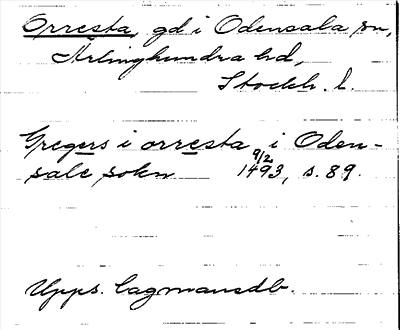 Orresta, gd i Odensala sn,
Ärlinghundra hd,
Stockh. l.
Gregers i orresta i Oden-
sale sokn 9/2 1493, s. 89.
Upps. lagmansdb.